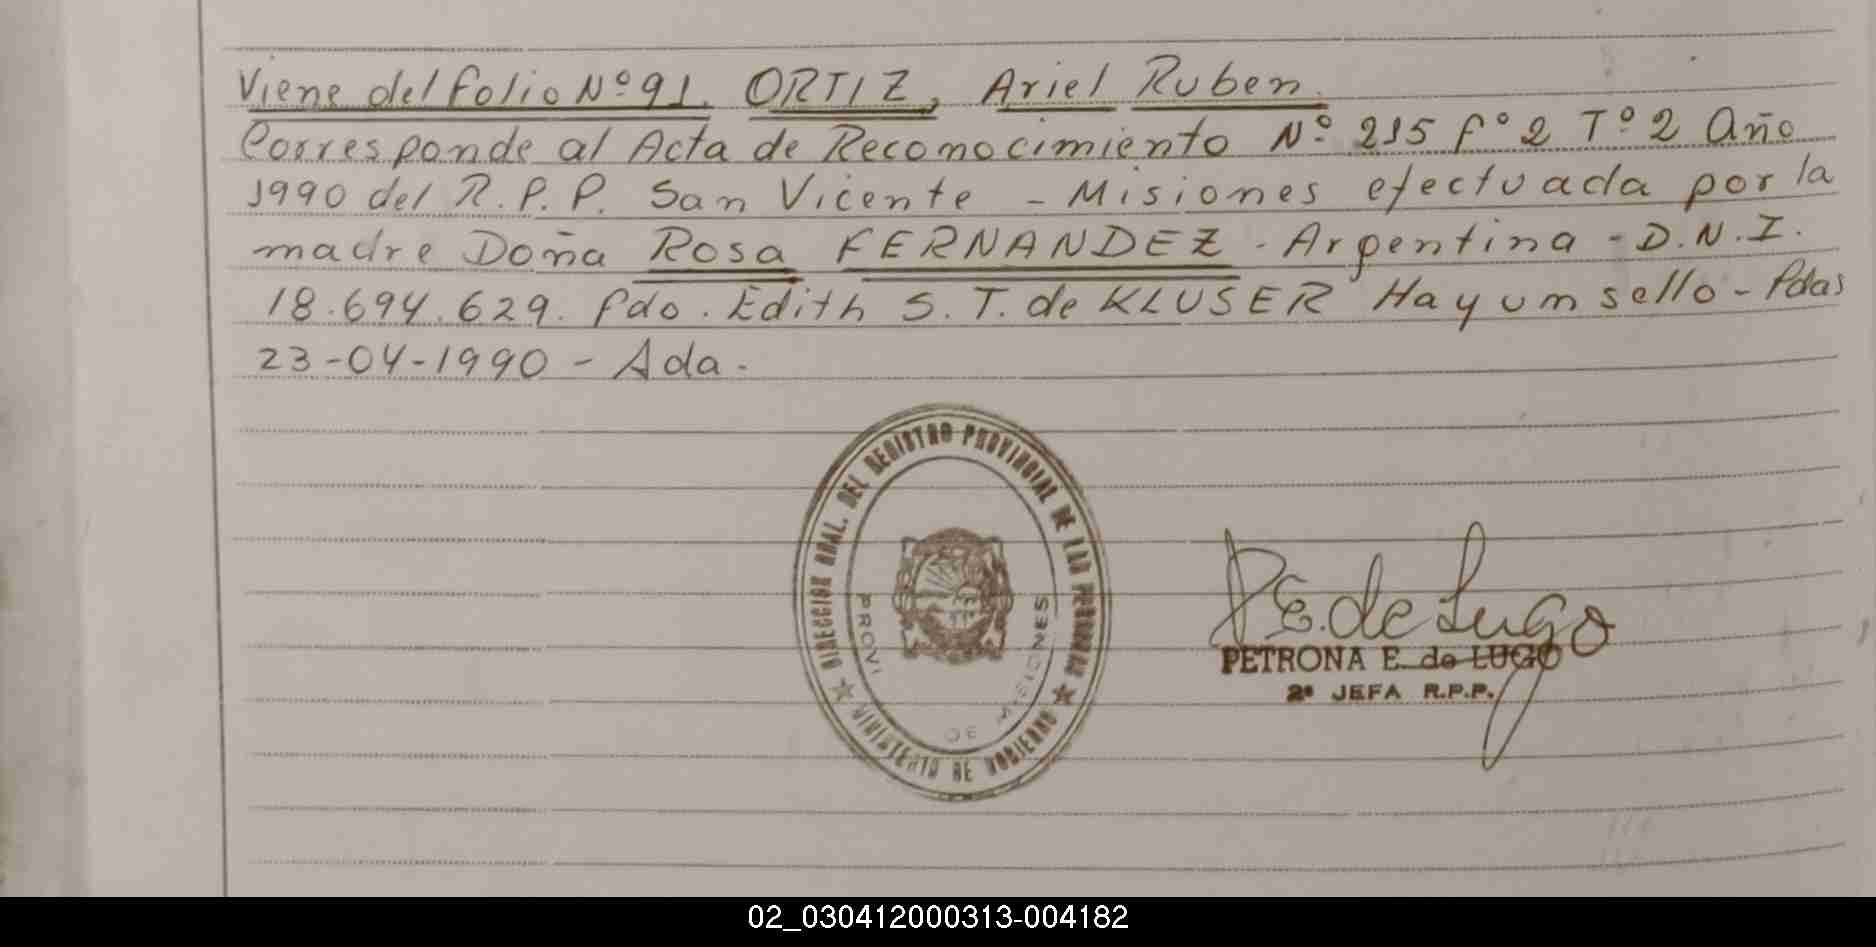 Viene del folio Nº 91. ORTIZ, Ariel Ruben.
Corresponde al Acta de Reconocimiento Nº 215 fº 2 Tº 2 Año
1990 del R.P.P. San Vicente - Misiones efectuada por la
madre Doña Rosa FERNANDEZ - Argentina - D.N.I.
18.694.629. fdo. Edith S. T. de KLUSER Hay un sello - Pdas
23-04-1990 - Ada.
DIRECCION GRAL. DEL REGISTRO PROVINCIAL DE LAS PERSONAS
MINISTERIO DE GOBIERNO
PROVI
DE MISIONES
P E. de Lugo
PETRONA E. de LUGO
2ª JEFA R.P.P.
02_030412000313-004182